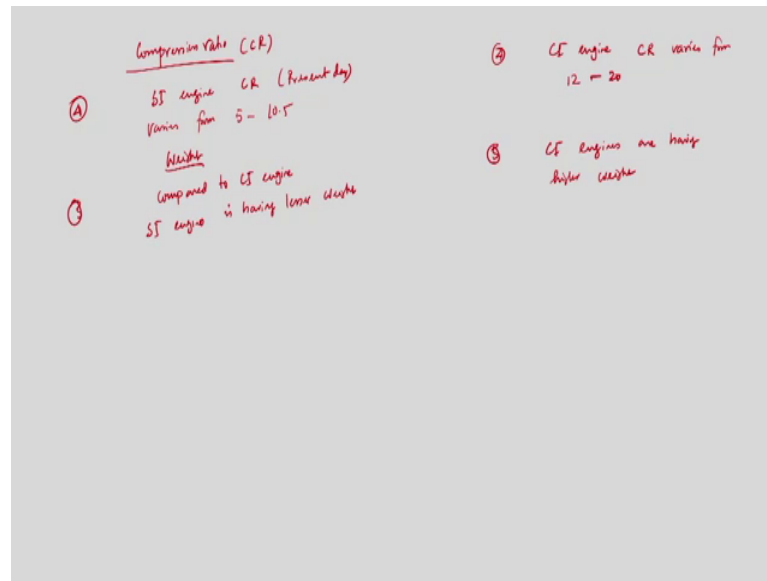 Compression ratio (CR)
④ SI engine CR (Present day)
varies from 5 - 10.5
Weight
⑤ Compared to CI engine
SI engine is having lesser weight
④ CI engine CR varies from
12 - 20
⑤ CI engines are having
higher weight